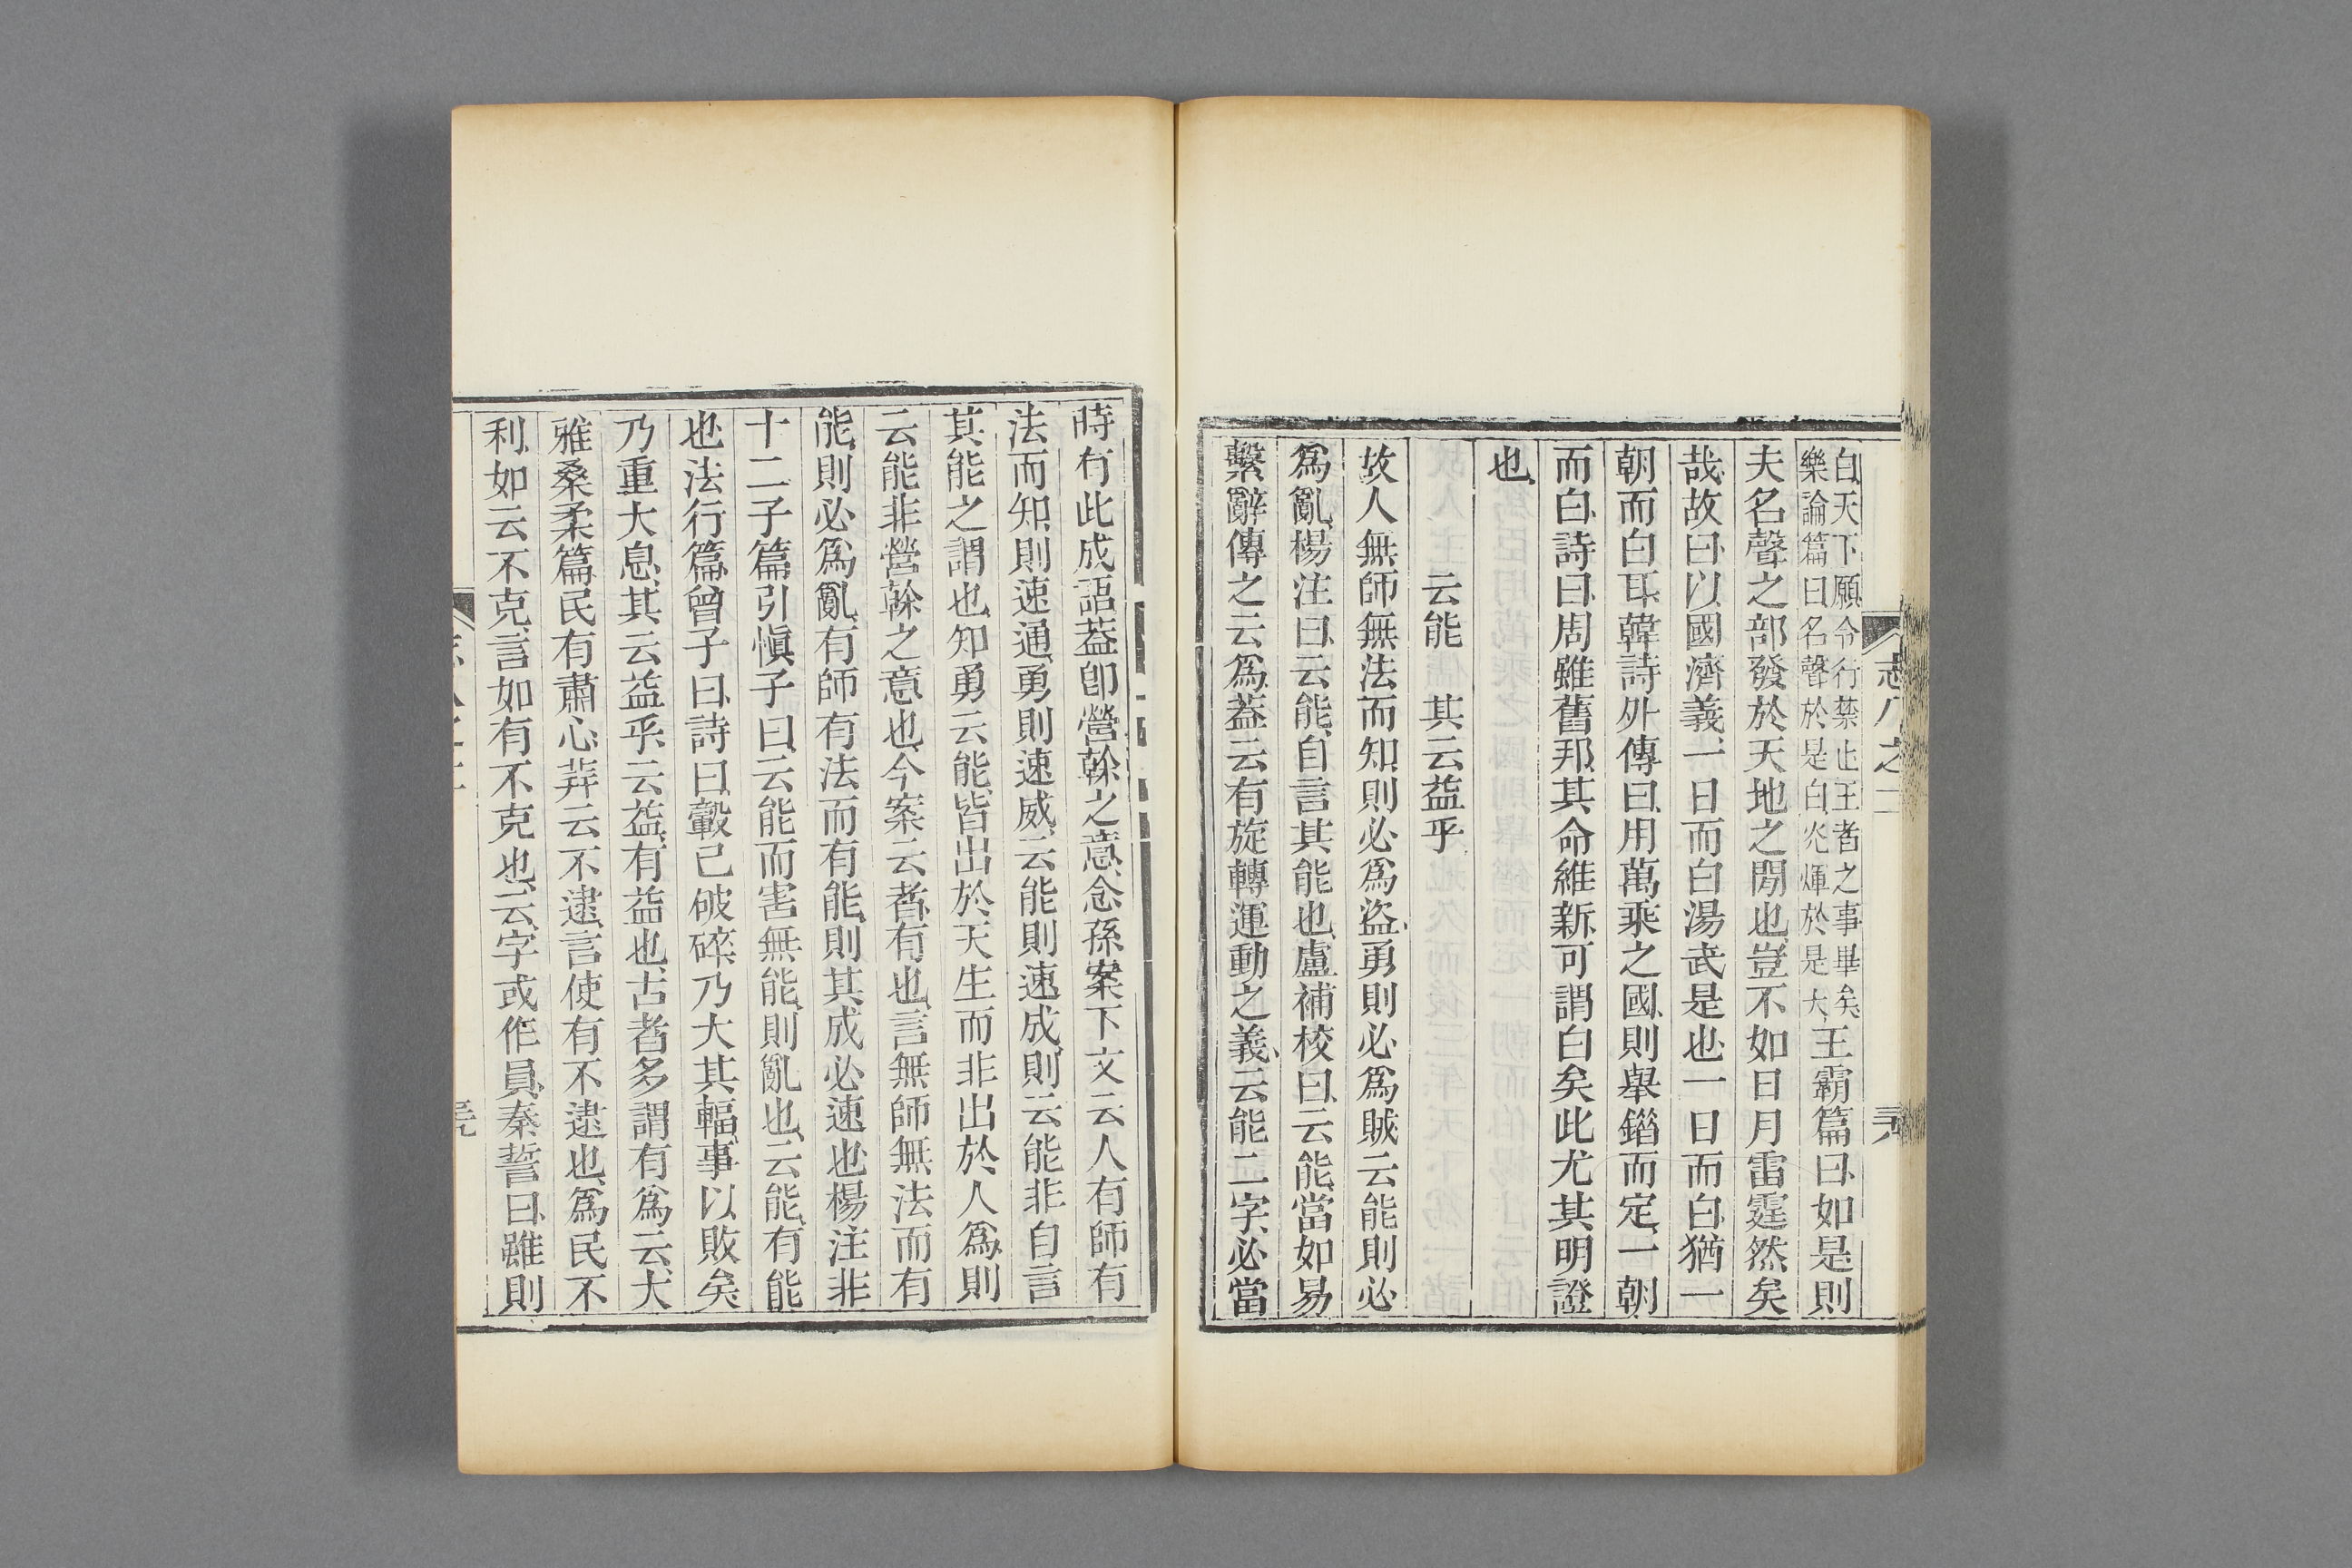 志八之二
丟
白天下願令行禁止王者之事畢矣
樂論篇曰名聲於是白光煇於是大王霸篇曰如是則
夫名聲之部發於天地之閒也豈不如日月雷霆然矣
哉故曰以國濟義一日而白湯武是也一日而白猶一
朝而白耳韓詩外傳曰用萬乘之國則舉錯而定一朝
而白詩曰周雖舊邦其命維新可謂白矣此尤其明證
也
云能 其云益乎
故人無師無法而知則必爲盜勇則必爲賊云能則必
爲亂楊注曰云能自言其能也盧補校曰云能當如易
繫辭傳之云爲葢云有旋轉運動之義云能二字必當
時有此成語葢卽營榦之意念孫案下文云人有師有
法而知則速通勇則速威云能則速成則云能非自言
其能之謂也知勇云能皆出於天生而非出於人爲則
云能非營榦之意也今案云者有也言無師無法而有
能則必爲亂有師有法而有能則其成必速也楊注非
十二子篇引愼子曰云能而害無能則亂也云能有能
也法行篇曾子曰詩曰轂已破碎乃大其輻事以敗矣
乃重大息其云益乎云益有益也古者多謂有爲云大
雅桑柔篇民有肅心荓云不逮言使有不逮也爲民不
利如云不克言如有不克也云字或作員秦誓曰雖則